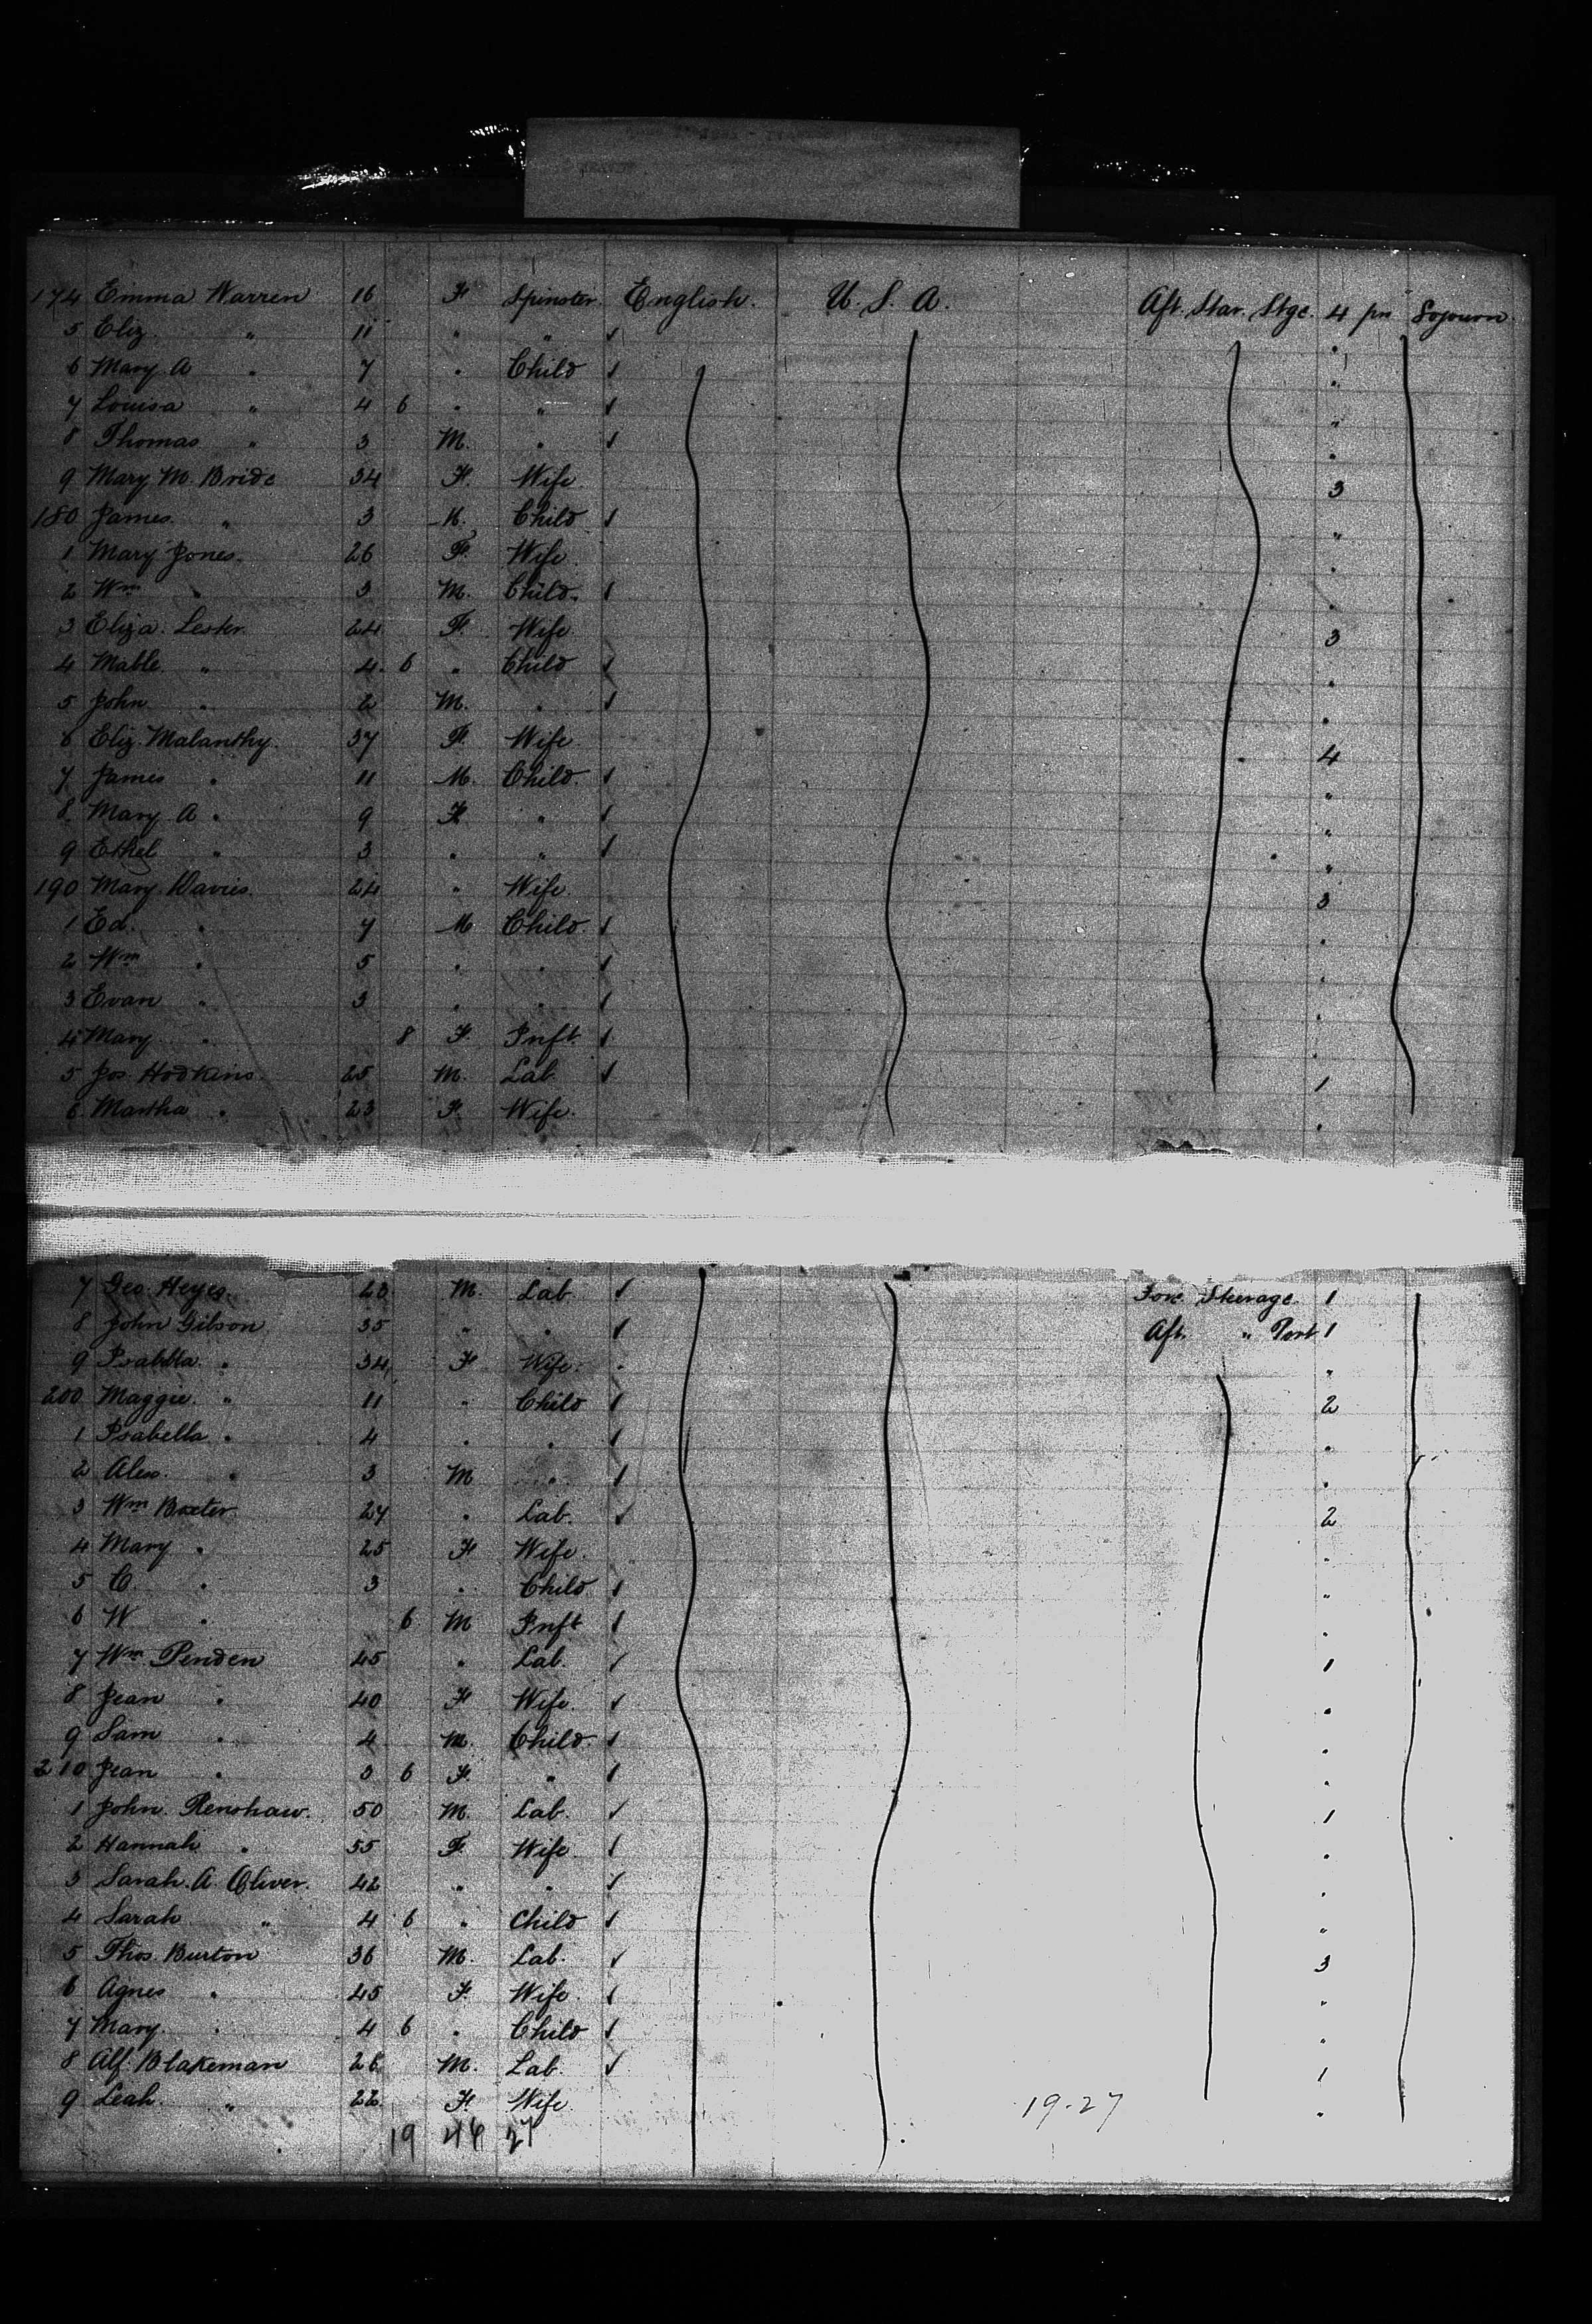 174 Emma Warren 16 F Spinster English. U. S. A. Aft. Star. Stge. 4 pcs Sojourn
5 Eliz " 11 " " "
6 Mary A " 7 " Child "
7 Louisa " 4 6 " " "
8 Thomas " 3 M. " "
9 Mary Mc Bride 34 F. Wife 3
180 James " 3 M. Child "
1 Mary Jones. 26 F. Wife "
2 Wm " 3 M. Child. "
3 Eliza. Lester. 24 F. Wife 3
4 Mable " 4. 6 " Child "
5 John " 2 M. " "
6 Eliz. Malanthy. 37 F. Wife 4
7 James " 11 M. Child. "
8 Mary A " 9 F. " "
9 Ethel " 3 " " "
190 Mary Davies. 24 " Wife. 3
1 Ed. " 7 M Child. "
2 Wm " 5 " " "
3 Evan " 3 " " "
4 Mary " 8 F. Inft. "
5 Jos. Hodkins. 25 M. Lab. 1
6 Martha " 23 F. Wife. "
7 Geo. Heyes. 20 M. Lab. Fore Steerage. 1
8 John Gibson 35 " " Aft. " Port 1
9 Isabella " 34 F Wife. "
200 Maggie. " 11 " Child 2
1 Isabella " 4 " " "
2 Alex. " 3 M " "
3 Wm Baxter 27 " Lab. 2
4 Mary " 25 F Wife. "
5 C. " 3 " Child "
6 W " 6 M Inft "
7 Wm Penden 45 " Lab. 1
8 Jean " 40 F Wife. "
9 Sam " 4 M. Child. "
210 Jean " 3 6 F. " "
1 John Renshaw. 50 M. Lab. 1
2 Hannah " 55 F. Wife "
3 Sarah. A. Oliver. 42 " " "
4 Sarah " 4 6 " Child "
5 Thos. Burton 36 M. Lab. 3
6 Agnes " 45 F. Wife "
7 Mary. " 4 6 " Child "
8 Alf. Blakeman 26 M. Lab. 1
9 Leah. " 22 F. Wife. "
19-27
19 46 27